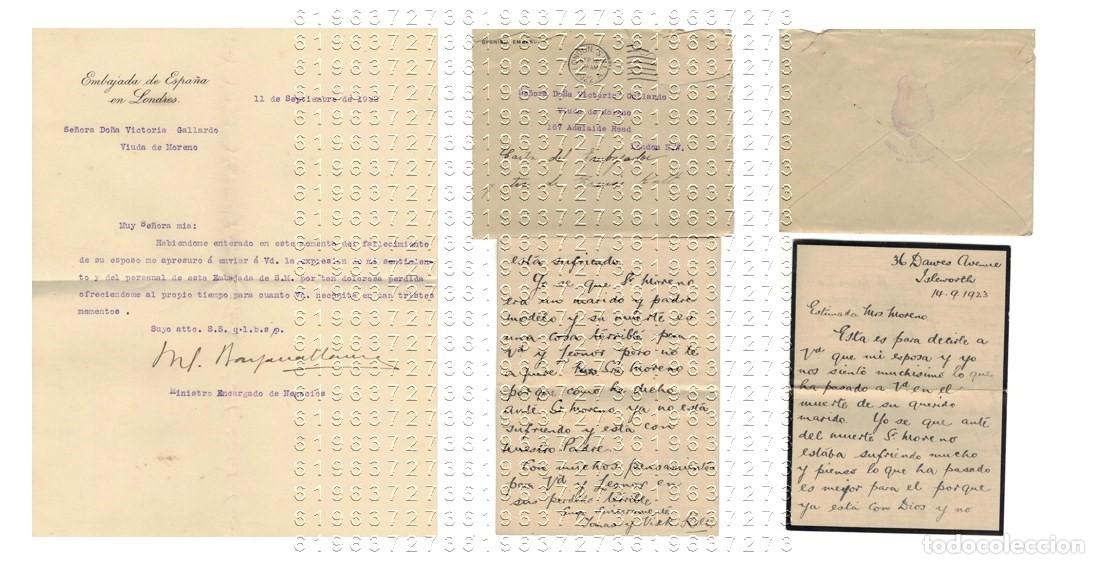 Embajada de España
en Londres.
11 de Septiembre de 19
Señora Doña Victoria Gallardo
Viuda de Moreno
Muy Señora mia:
Habiendome enterado en este momento del fallecimiento
de su esposo me apresuro á enviar á Vd. la expresion de mi sentimien-
to y del personal de esta Embajada de S.M. por tan dolorosa perdida
ofreciendome al propio tiempo para cuanto Vd. necesite en tan tristes
momentos.
Suyo atto. S.S. q.l.b.s/p.
Ministro Encargado de Negocios
Señora Doña Victoria Gallardo
Viuda de Moreno
167 Adelaide Road
London N.W.
Carta del Embajador
esta sufriendo.
Yo se que Sr. Moreno
era un marido y padre
modelo y su muerte es
una cosa terrible para
Vd y Leonor pero no te
Sr. Moreno
porque como he dicho
ante Sr. Moreno, ya no está
sufriendo y esta con
Nuestro Padre.
Con muchos pensamientos
para Vd y Leonor en
su perdida terrible
Tomas y
36 Dawes Avenue
Isleworth
14.9.1923
Estimada Mrs Moreno
Esta es para decirle a
Vd que mi esposa y yo
nos siento muchisimo lo que
ha pasado a Vd en el
muerte de su querido
marido. Yo se que ante
del muerte Sr. Moreno
estába sufriendo mucho
y pienso lo que ha pasado
es mejor para el porque
ya esta con Dios y no
619637273
todocoleccion